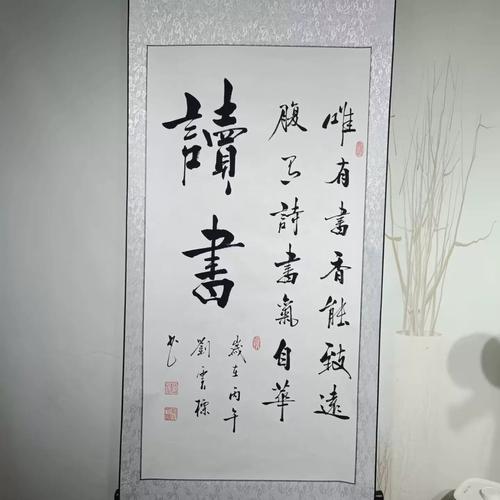 唯有書香能致遠
腹有詩書氣自華
讀書
歲在丙午
劉雲標
書